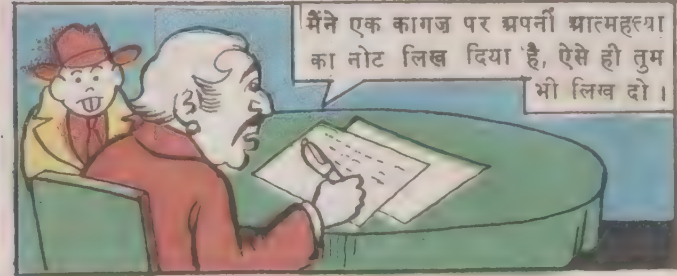 मैंने एक कागज पर अपनी आत्महत्या
का नोट लिख दिया है, ऐसे ही तुम
भी लिख दो ।